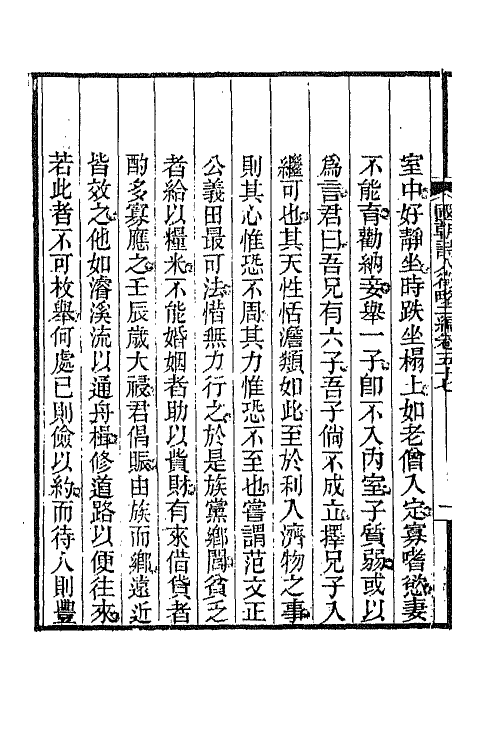 國朝詩人徵略二編卷五十七
一
室中好靜坐時趺坐榻上如老僧入定寡嗜慾妻
不能育勸納妾舉一子卽不入內室子質弱或以
爲言君曰吾兄有六子吾子倘不成立擇兄子入
繼可也其天性恬澹類如此至於利人濟物之事
則其心惟恐不周其力惟恐不至也嘗謂范文正
公義田最可法惜無力行之於是族黨鄉閭貧乏
者給以糧米不能婚姻者助以貲財有來借貸者
酌多寡應之壬辰歲大祲君倡賑由族而鄉遠近
皆效之他如濬溪流以通舟楫修道路以便往來
若此者不可枚舉何處已則儉以約而待人則豐